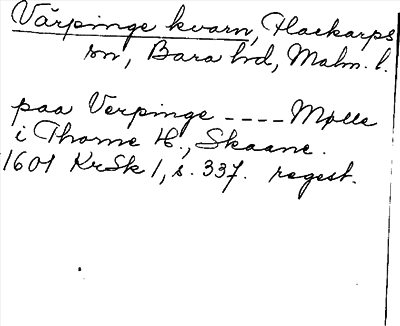 Värpinge kvarn, Flackarps
sn, Bara hd, Malm. l.
paa Verpinge ---- Mølle
i Thorne H., Skaane.
1601 KrSk 1, s. 337. regest.